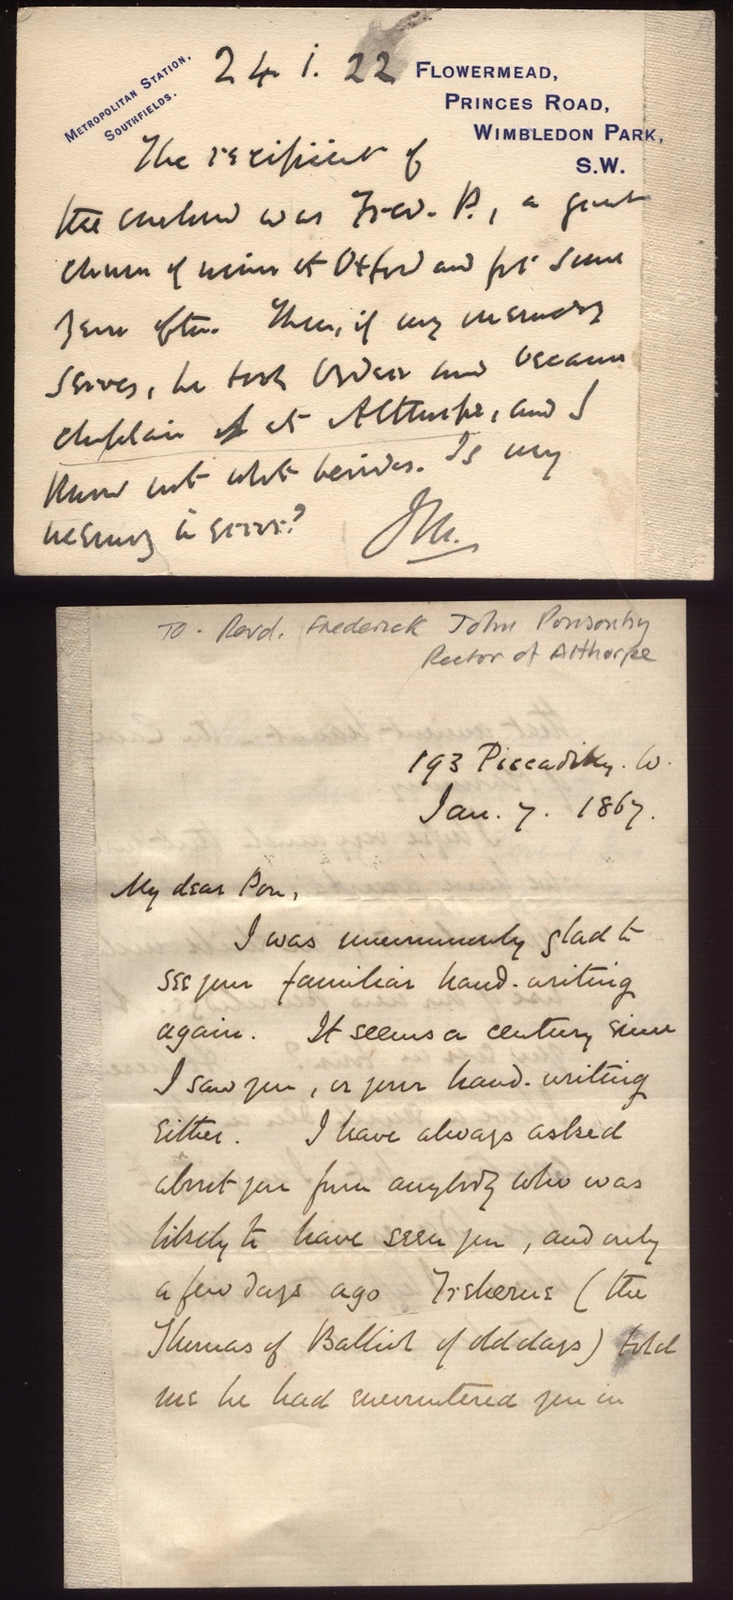 METROPOLITAN STATION,
SOUTHFIELDS.
24. 1. 22
FLOWERMEAD,
PRINCES ROAD,
WIMBLEDON PARK,
S.W.
The recipient of
the enclosed was Fred. P., a great
chum of mine at Oxford and for some
years after. Then, if my memory
serves, he took Orders and became
chaplain at Althorpe, and I
know not what besides. Is my
memory in error?
JM.
To - Revd. Frederick John Ponsonby
Rector of Althorpe
193 Piccadilly. W.
Jan. 7. 1867.
My dear Pon,
I was uncommonly glad to
see your familiar hand-writing
again. It seems a century since
I saw you, or your hand-writing
either. I have always asked
about you from anybody who was
likely to have seen you, and only
a few days ago Treherne (the
Thomas of Balliol of old days) told
me he had encountered you in